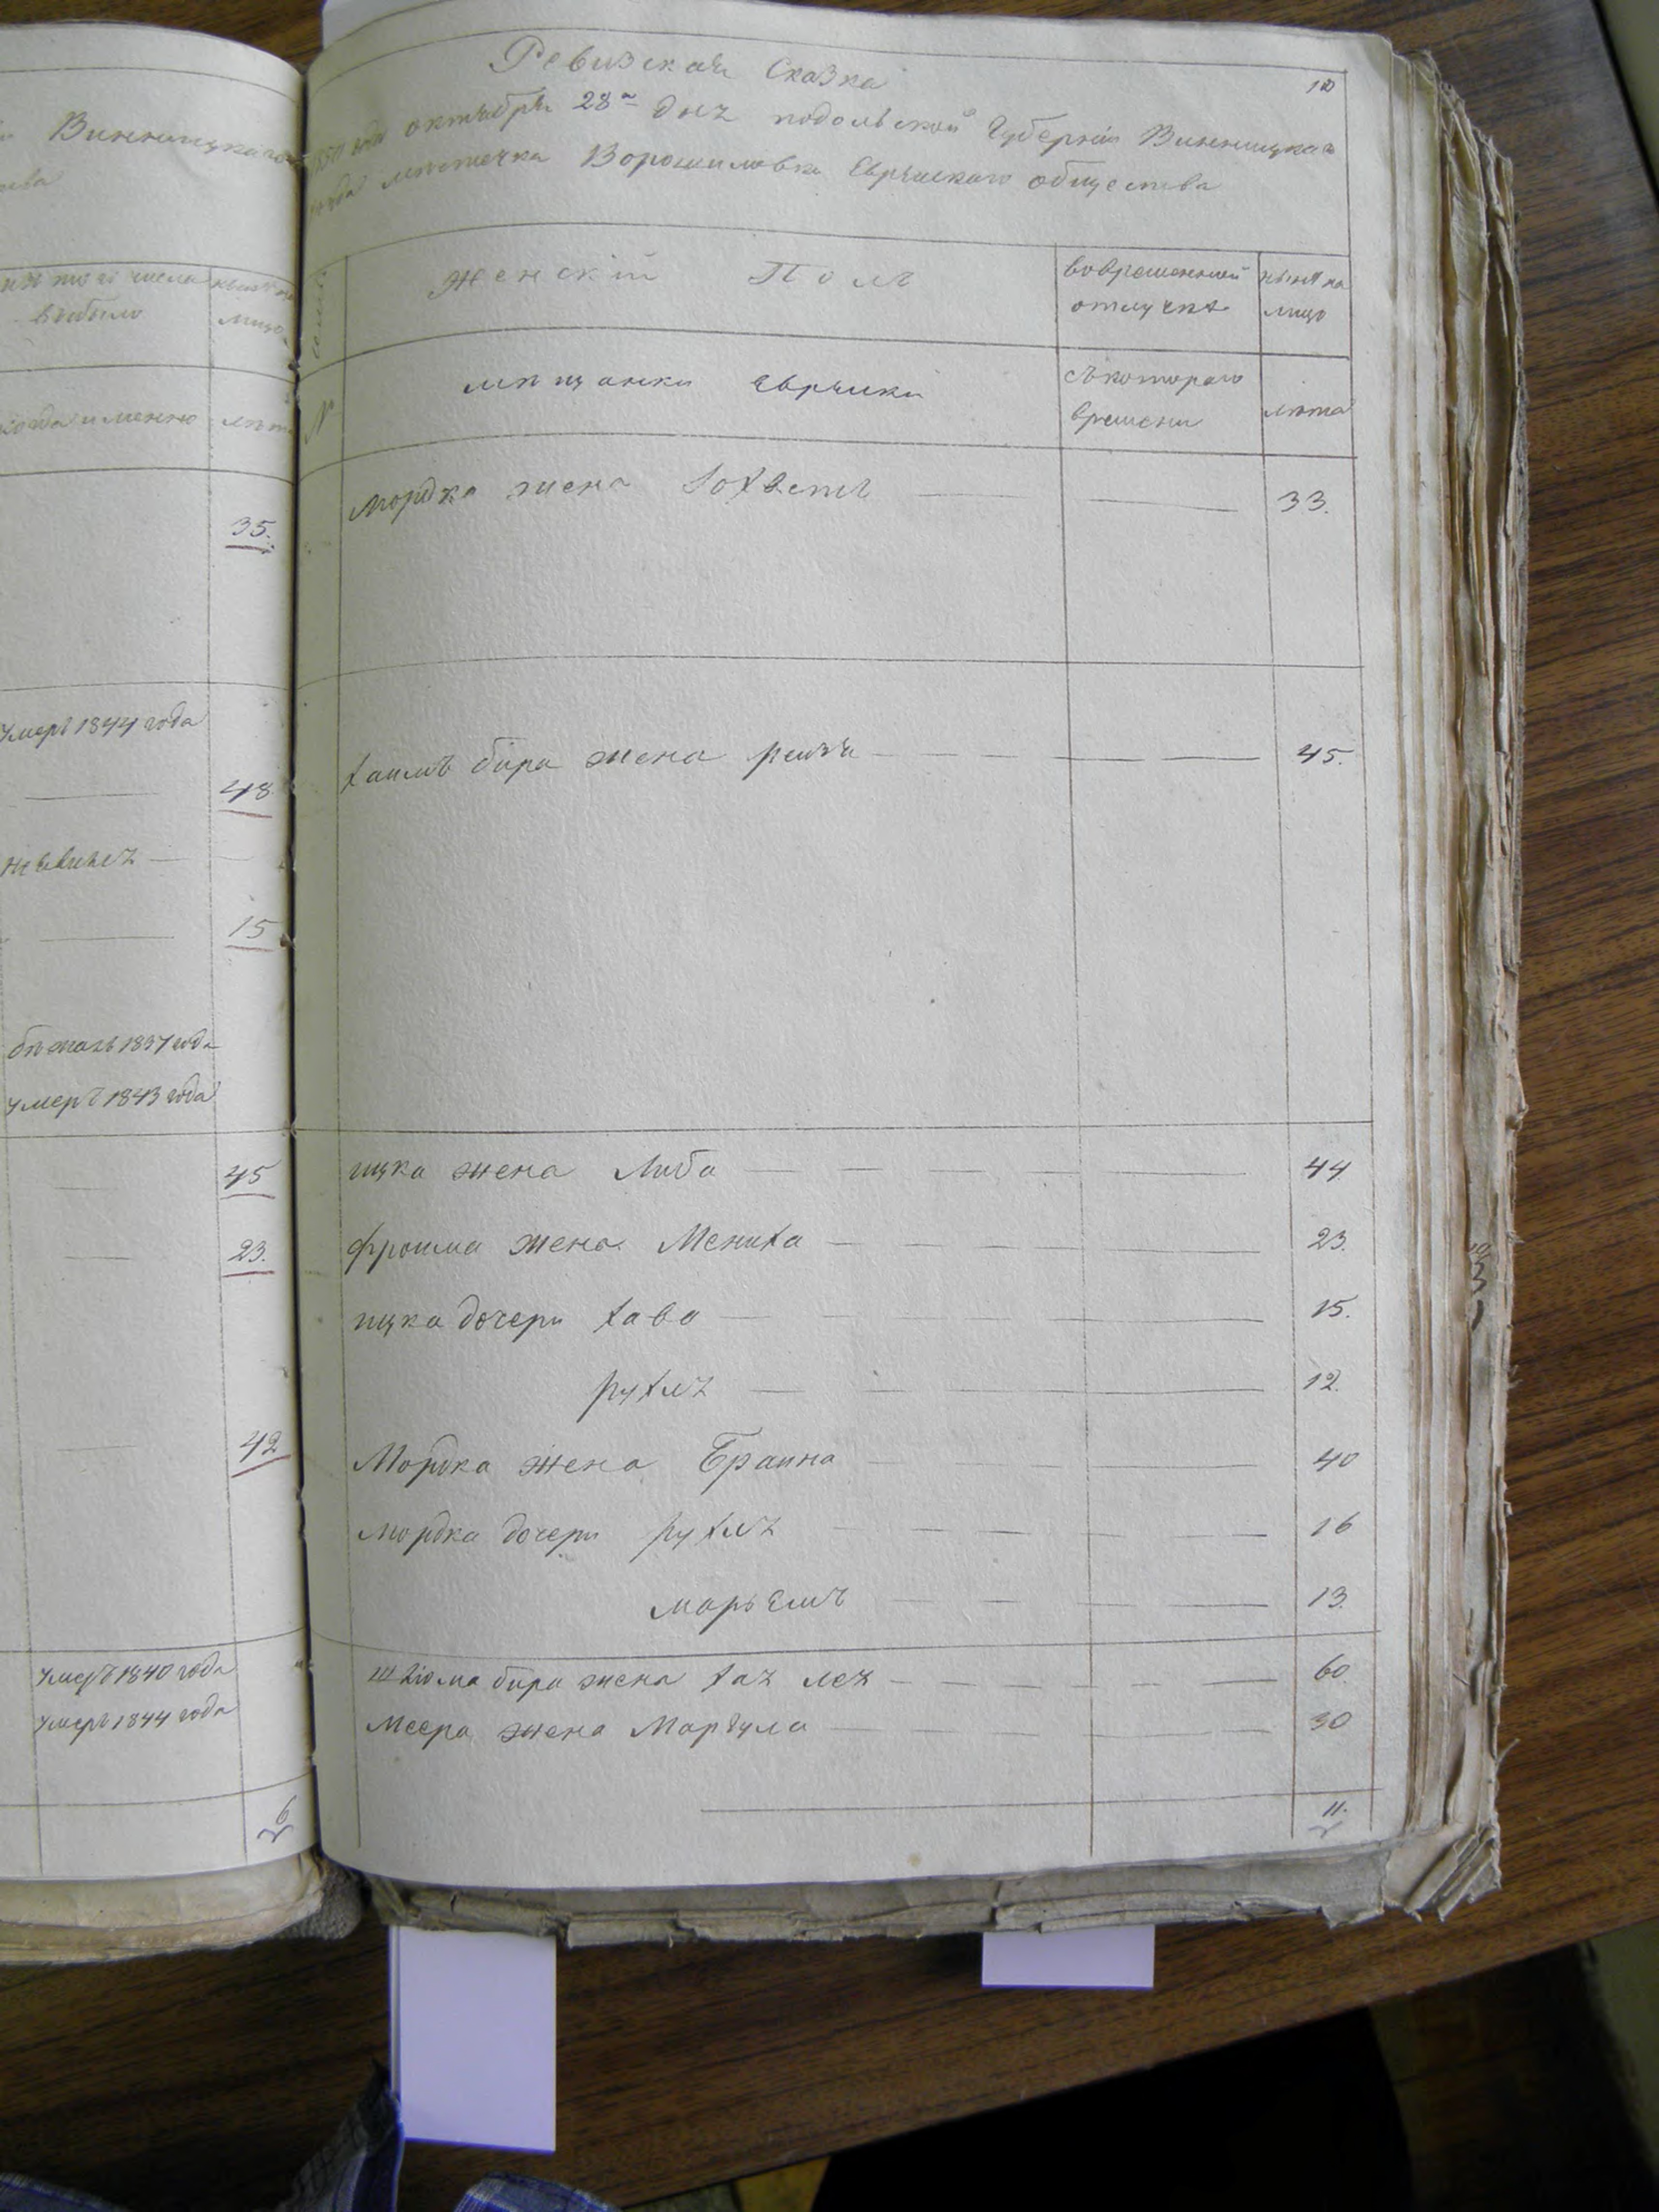 Винницкаго
изъ того числа выбыло
когда именно
35.
умеръ 1844 года
48
15
бежалъ 1837 года
умеръ 1843 года
45
23.
42
умеръ 1840 года
умеръ 1844 года
6
Ревизская Сказка
10
1850 года октября 28го дня подольской Губерніи Винницкаго
уезда местечка Ворошиловки Еврейскаго общества
№
женскій Полъ
вовременной отлучке
ныне на лицо
мещанки Еврейки
съкотораго времени
лета
мордка жена
33.
хаимъ бера жена рейзя
45.
ицка жена Либа
44
фроима жена Мениха
23.
ицка дочери хава
15.
рухля
12.
Мордка жена Браина
40
мордка дочери рухля
16
марьемъ
13.
шліома бера жена хая лея
60.
Меера жена Маргула
30
11.